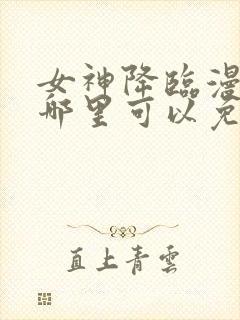 女神降臨漫
哪里可以免
直上青雲